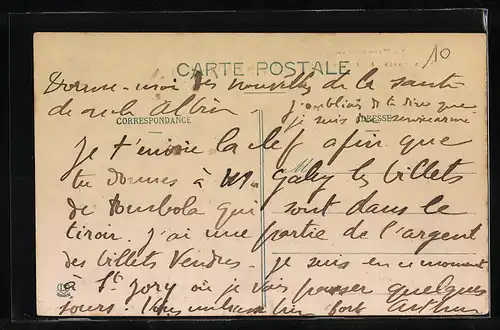 10
CARTE POSTALE
Donne-moi des nouvelles de la santé
de Albin
j'oubliais de te dire que
je suis
CORRESPONDANCE
ADRESSE
Je t'envoie la clef afin que
tu donnes à Mr Gaby les billets
de Tombola qui sont dans le
tiroir. j'ai une partie de l'argent
des billets Vendus. je suis en ce moment
à St Jory où je vais passer quelques
jours. bien fort Arthur